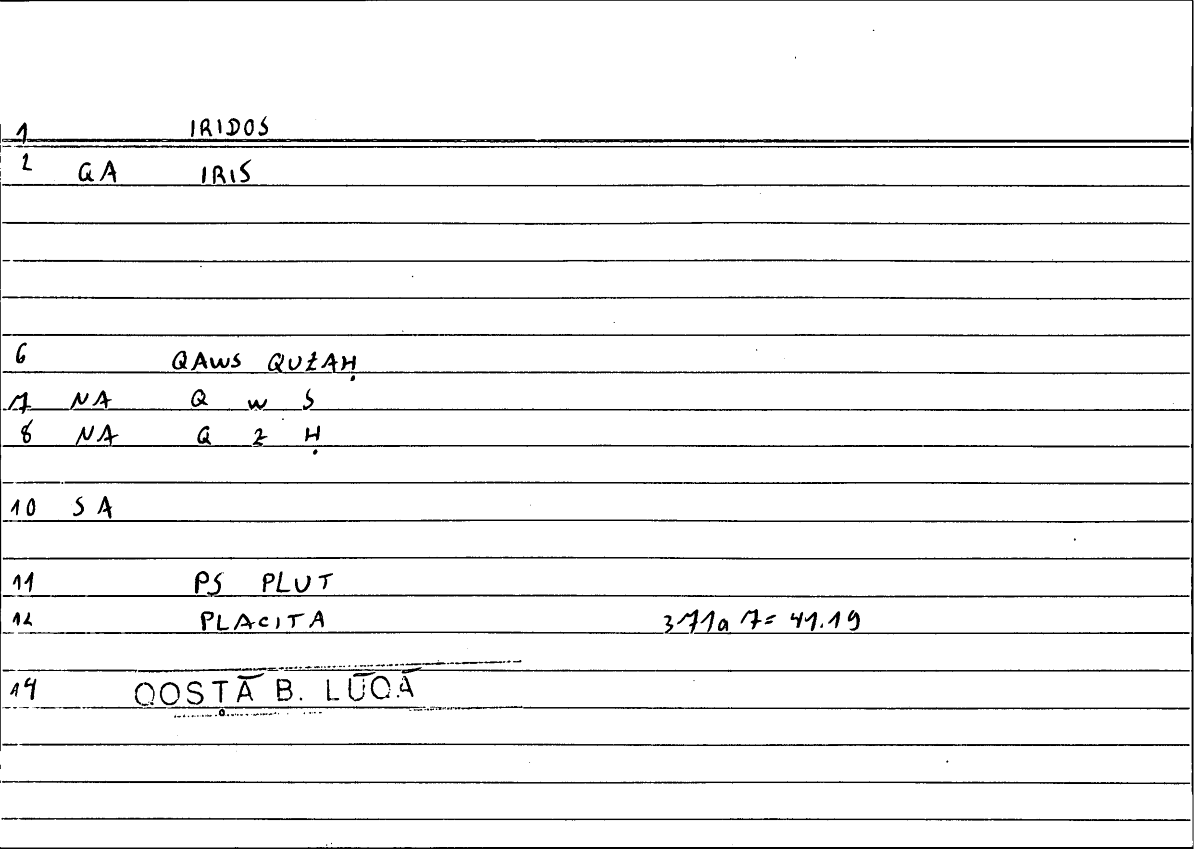 1 IRIDOS
2 GA IRIS
6 QAWS QUZAḤ
7 NA Q W S
8 NA Q Z Ḥ
10 SA
11 PS PLUT
12 PLACITA 371a 7= 41.19
14 QOSṬĀ B. LŪQĀ